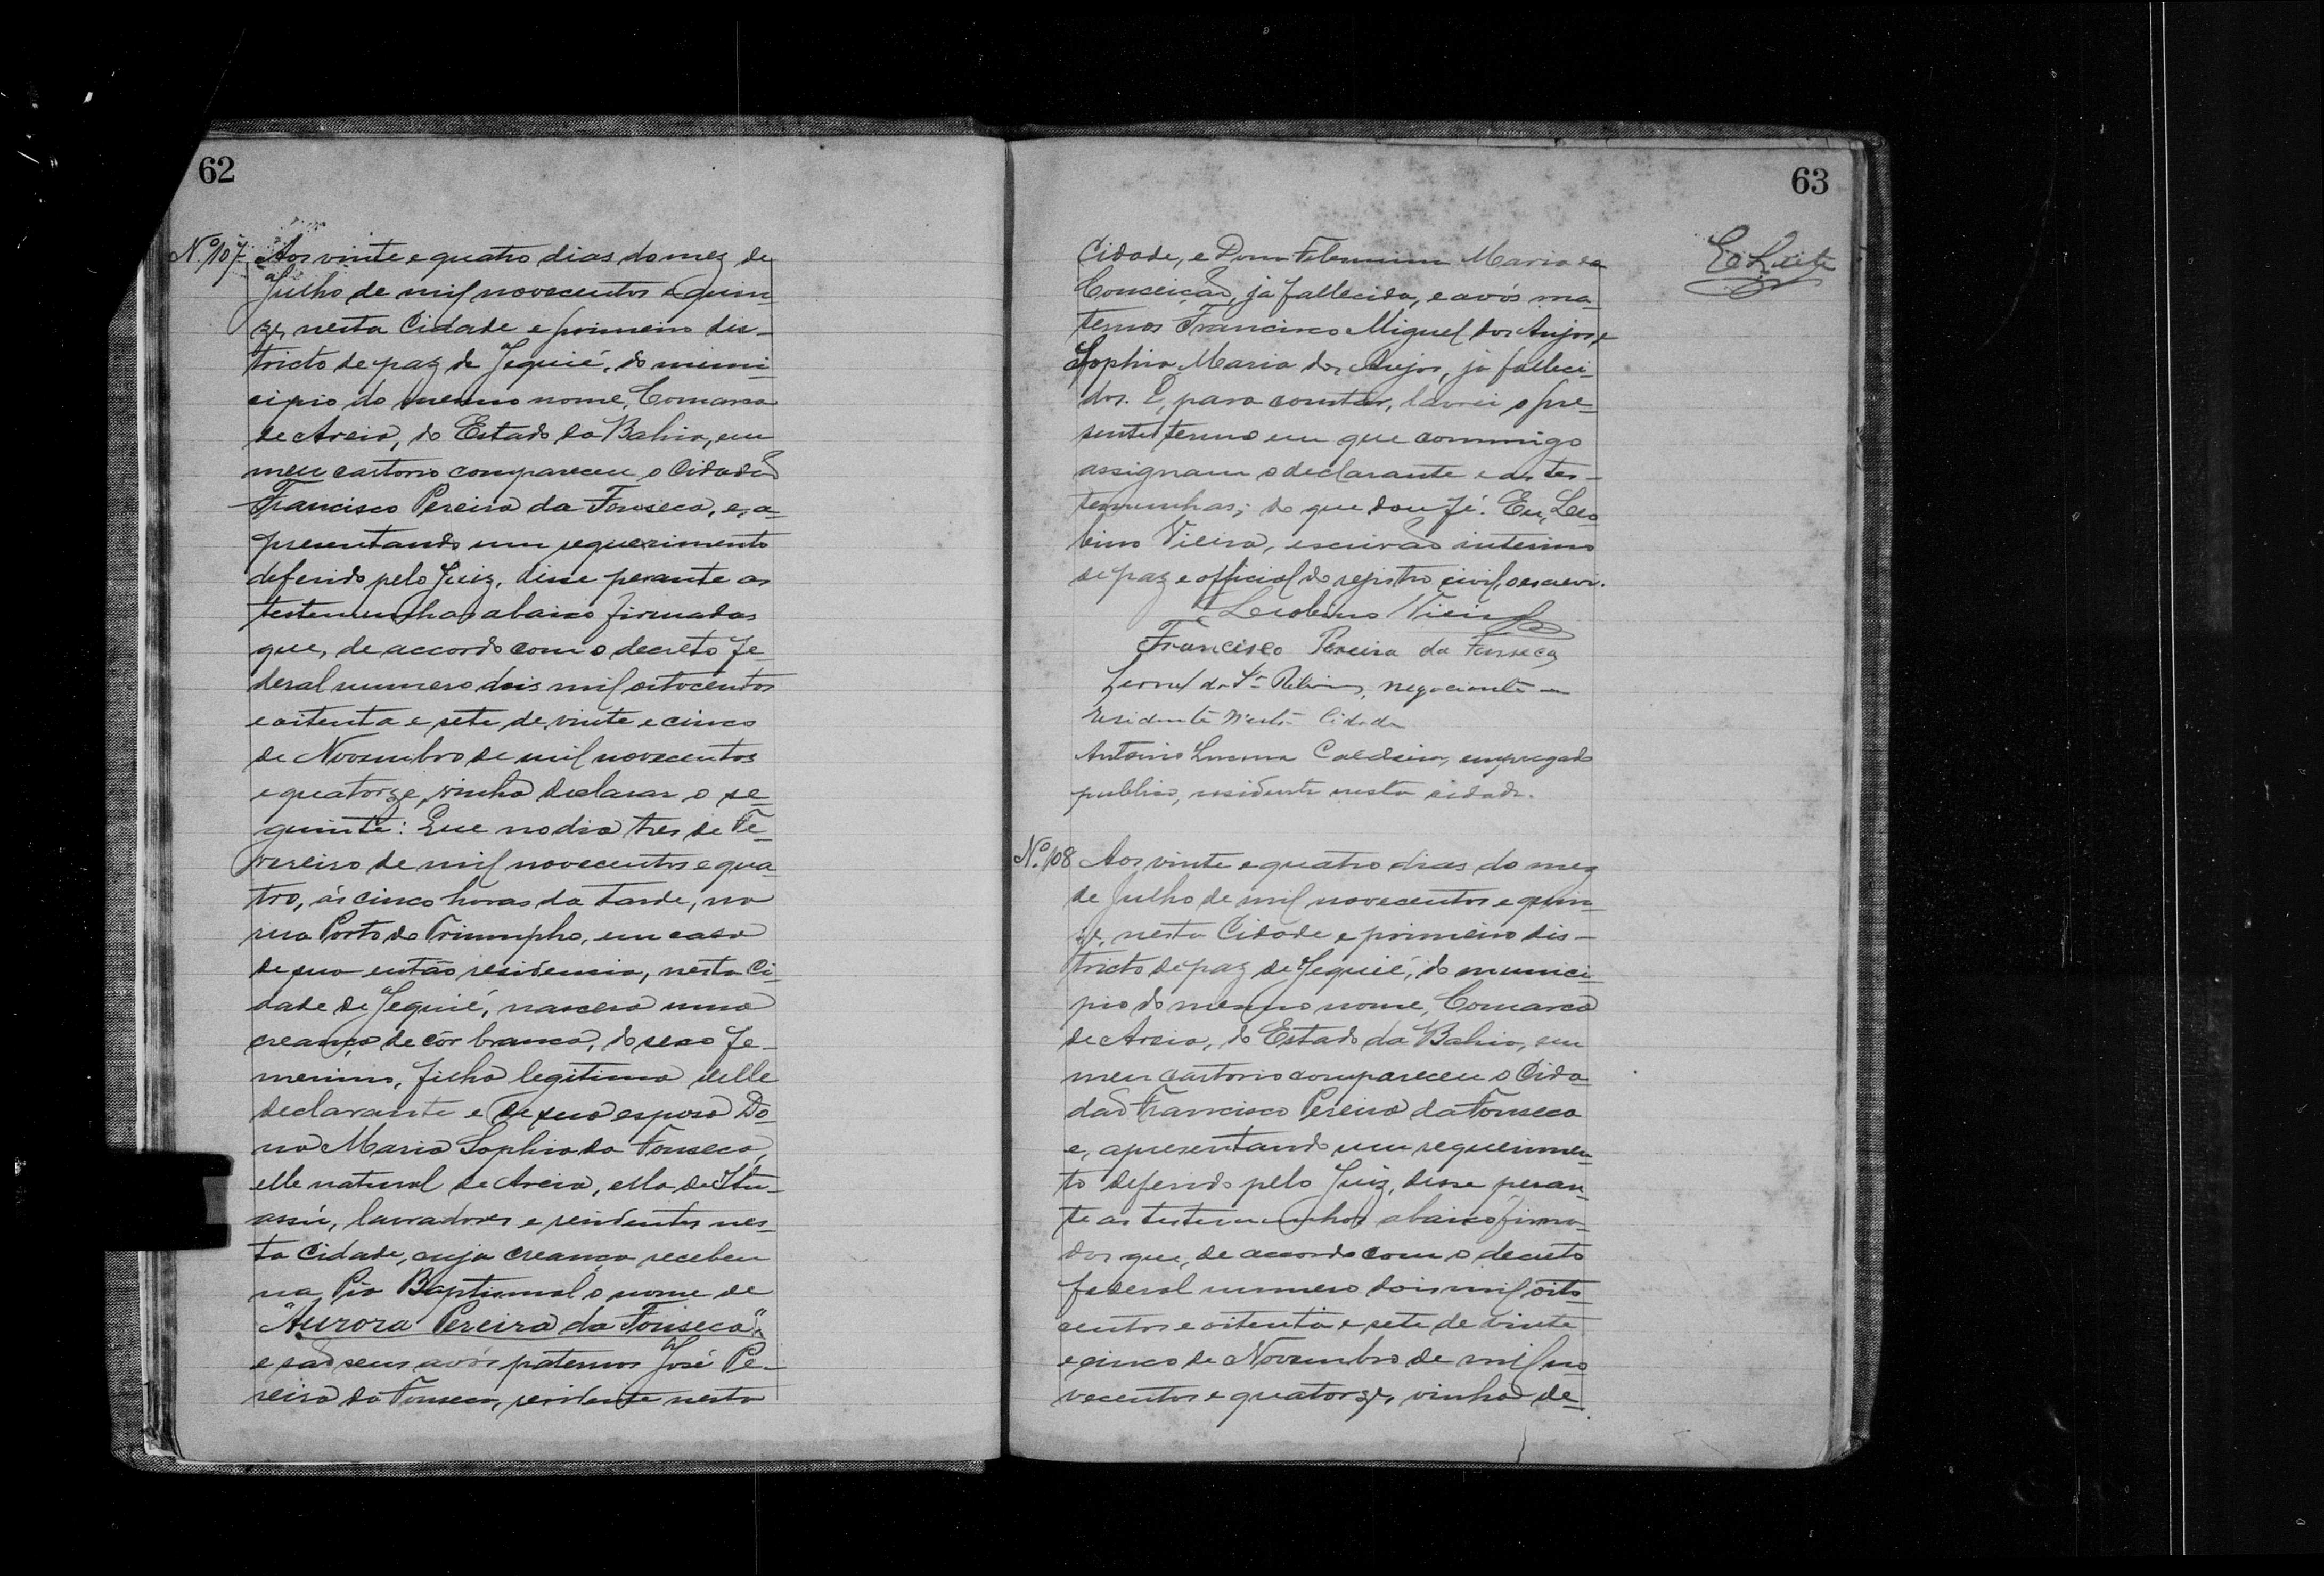 62
Nº 107 Aos vinte e quatro dias do mez de
Julho de mil novecentos e quin-
ze, nesta Cidade e primeiro dis-
tricto de paz de Jequié, do muni-
cipio do mesmo nome, Comarca
de Areia, do Estado da Bahia, em
meu cartorio compareceu o Cidadão
Francisco Pereira da Fonseca, e, a-
presentando um requerimento
deferido pelo Juiz, disse perante as
testemunhas abaixo firmadas
que, de accordo com o decreto fe-
deral numero dois mil oitocentos
e oitenta e sete de vinte e cinco
de Novembro de mil novecentos
e quatorze, vinha declarar o se-
guinte: Que no dia tres de Fe-
vereiro de mil novecentos e qua-
tro, ás cinco horas da tarde, na
rua Porto do Triumpho, em casa
de sua então residencia, nesta Ci-
dade de Jequié, nascera uma
creança de côr branca, do sexo fe-
menino, filha legitima delle
declarante e de sua esposa Do-
na Maria Sophia da Fonseca,
elle natural de Areia, ella de Itu-
assú, lavradores e residentes nes-
ta Cidade, cuja creança recebeu
na Pia Baptismal o nome de
"Aurora Pereira da Fonseca",
e são seus avós paternos José Pe-
reira da Fonseca, residente nesta
63
Cidade, e Dona Maria da
Conceição, já fallecida, e avós ma-
ternos Francisco Miguel dos Anjos e
Sophia Maria dos Anjos, já falleci-
dos. E, para constar, lavrei o pre-
sente termo em que commigo
assignam o declarante e as tes-
temunhas; do que dou fé. Eu, Leo
bino Vieira, escrivão interino
de paz e official do registro civil, o escrevi.
Leobino Vieira
Francisco Pereira da Fonseca
negociante
residente nesta Cidade
Antonio Caldeira, empregado
publico, residente nesta cidade.
Nº 108 Aos vinte e quatro dias do mez
de Julho de mil novecentos e quin-
ze, nesta Cidade e primeiro dis-
tricto de paz de Jequié, do munici-
pio do mesmo nome, Comarca
de Areia, do Estado da Bahia, em
meu cartorio compareceu o Cida-
dão Francisco Pereira da Fonseca
e, apresentando um requerimen-
to deferido pelo Juiz, disse peran-
te as testemunhas abaixo firma-
das que, de accordo com o decreto
federal numero dois mil oito-
centos e oitenta e sete de vinte
e cinco de Novembro de mil no
vecentos e quatorze, vinha de-